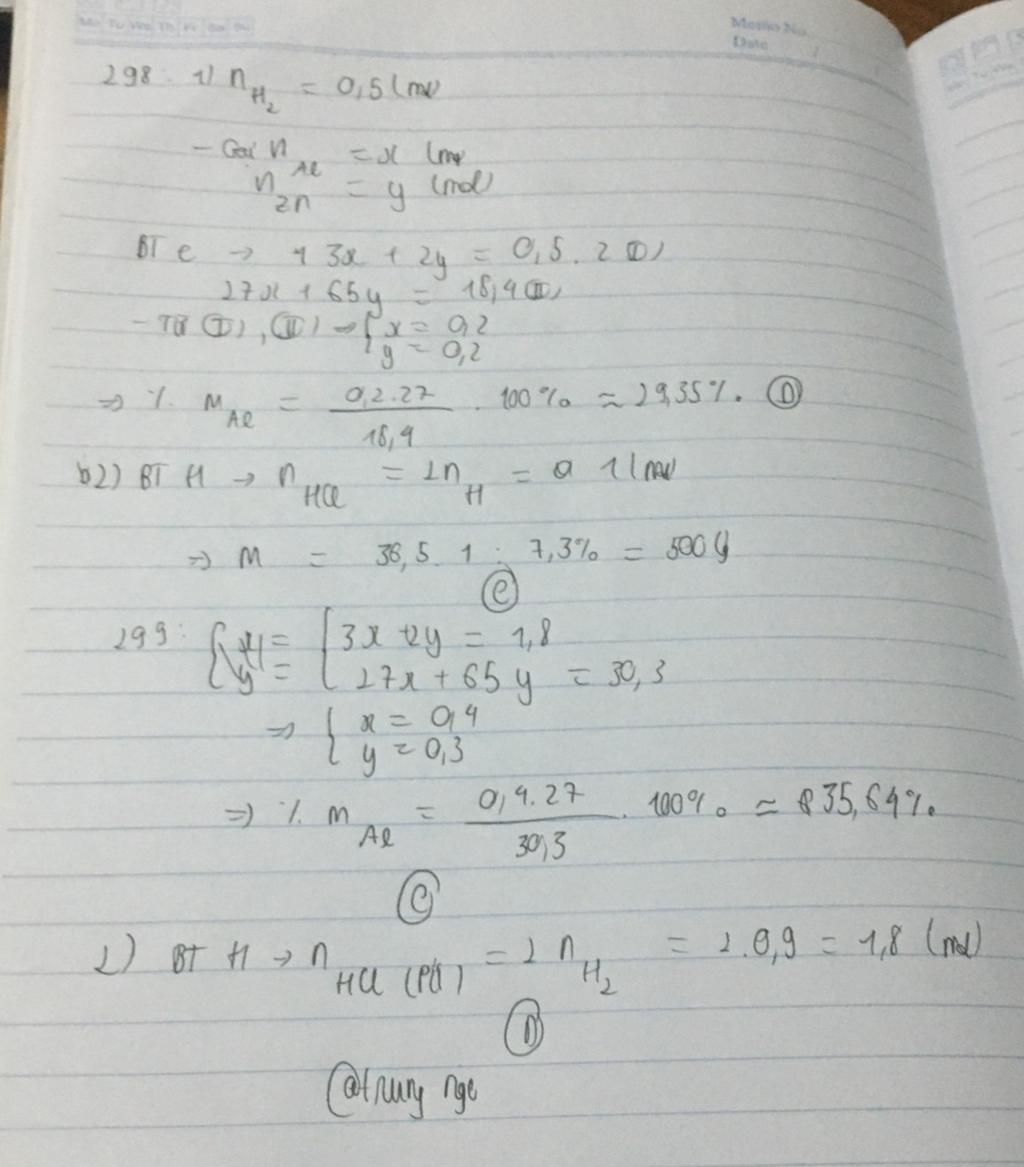 Mo Tu We Th Fr Sa Su
Memo No.
Date / /
298: 1) n H₂ = 0,5 (mol)
- Gọi n Al = x (mol)
n Zn = y (mol)
BT e → 3x + 2y = 0,5 . 2 (I)
27x + 65y = 18,4 (II)
- Từ (I), (II) → { x = 0,2
y = 0,2
⇒ % m Al = 0,2.27 / 18,4 . 100% ≈ 29,35%. Ⓓ
2) BT H → n HCl = 2n H = 1 (mol)
⇒ m = 36,5 . 1 : 7,3% = 500 g
Ⓒ
299: { 3x + 2y = 1,8
27x + 65y = 30,3
⇒ { x = 0,4
y = 0,3
⇒ % m Al = 0,4.27 / 30,3 . 100% ≈ 35,64%.
Ⓒ
2) BT H → n HCl (PƯ) = 2 n H₂ = 2.0,9 = 1,8 (mol)
Ⓓ
@trung